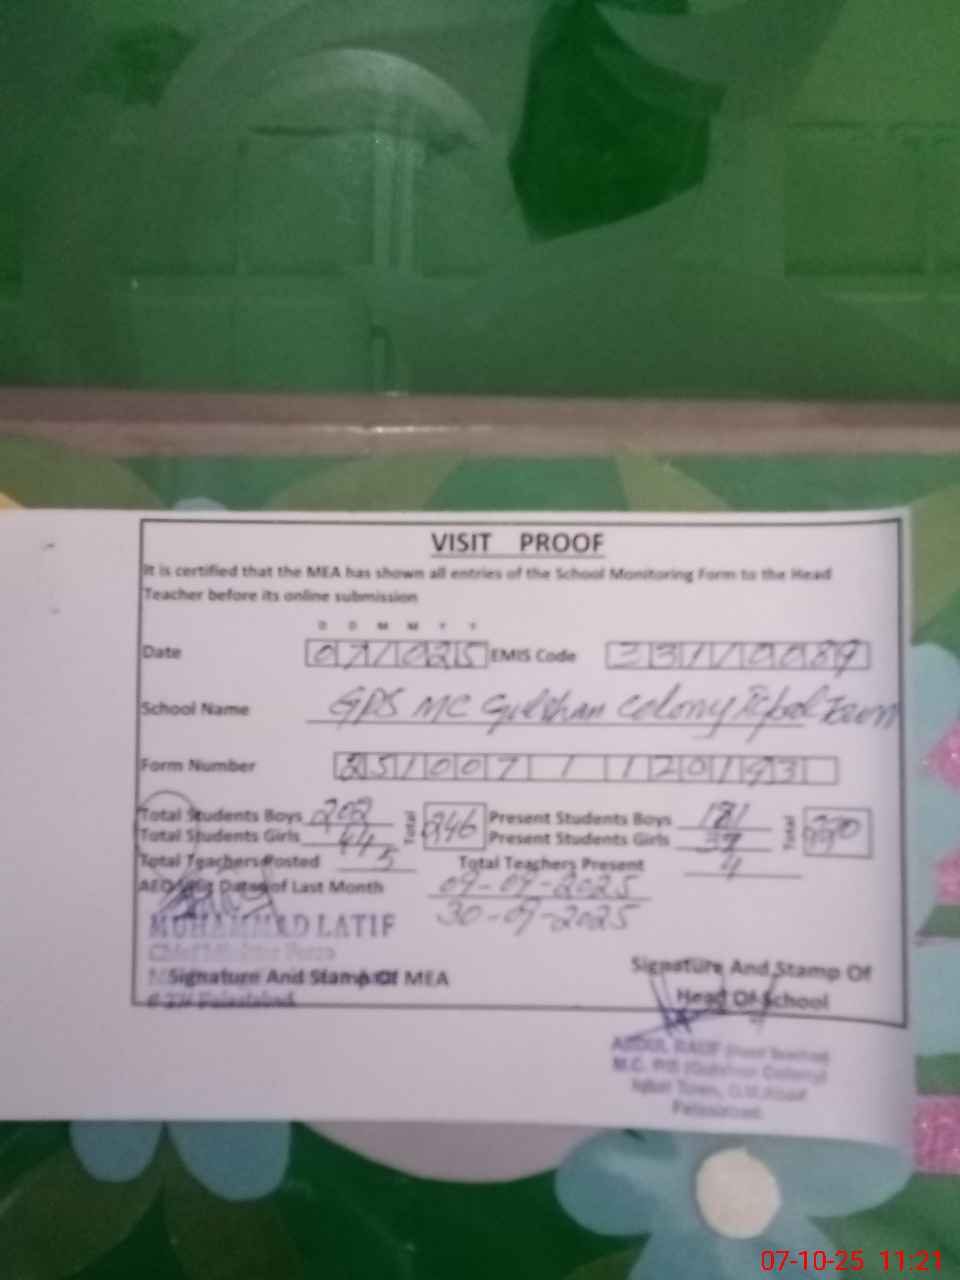 VISIT PROOF
It is certified that the MEA has shown all entries of the School Monitoring Form to the Head
Teacher before its online submission
D D M M Y Y
Date 071025 EMIS Code 33110089
School Name GPS MC Gulshan Colony Iqbal Town
Form Number 251007 1 120193
Total Students Boys 202 Total 246 Present Students Boys 181 Total
Total Students Girls 44 Present Students Girls
Total Teachers Posted 5 Total Teachers Present 4
AEO Visit Dates of Last Month 09-09-2025
30-09-2025
MUHAMMAD LATIF
Signature And Stamp Of MEA
Signature And Stamp Of
Head Of School
ABDUL RAUF (Head Teacher)
M.C. P/S (Gulshan Colony)
Iqbal Town, Road
Faisalabad.
07-10-25 11:21